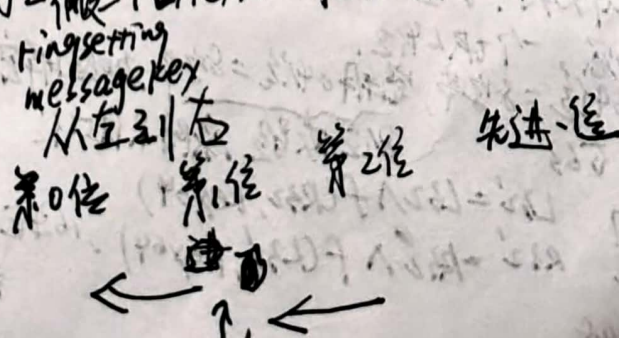 ringsetting
messagekey
从左到右
第0位 第1位 第2位 先进一位
进